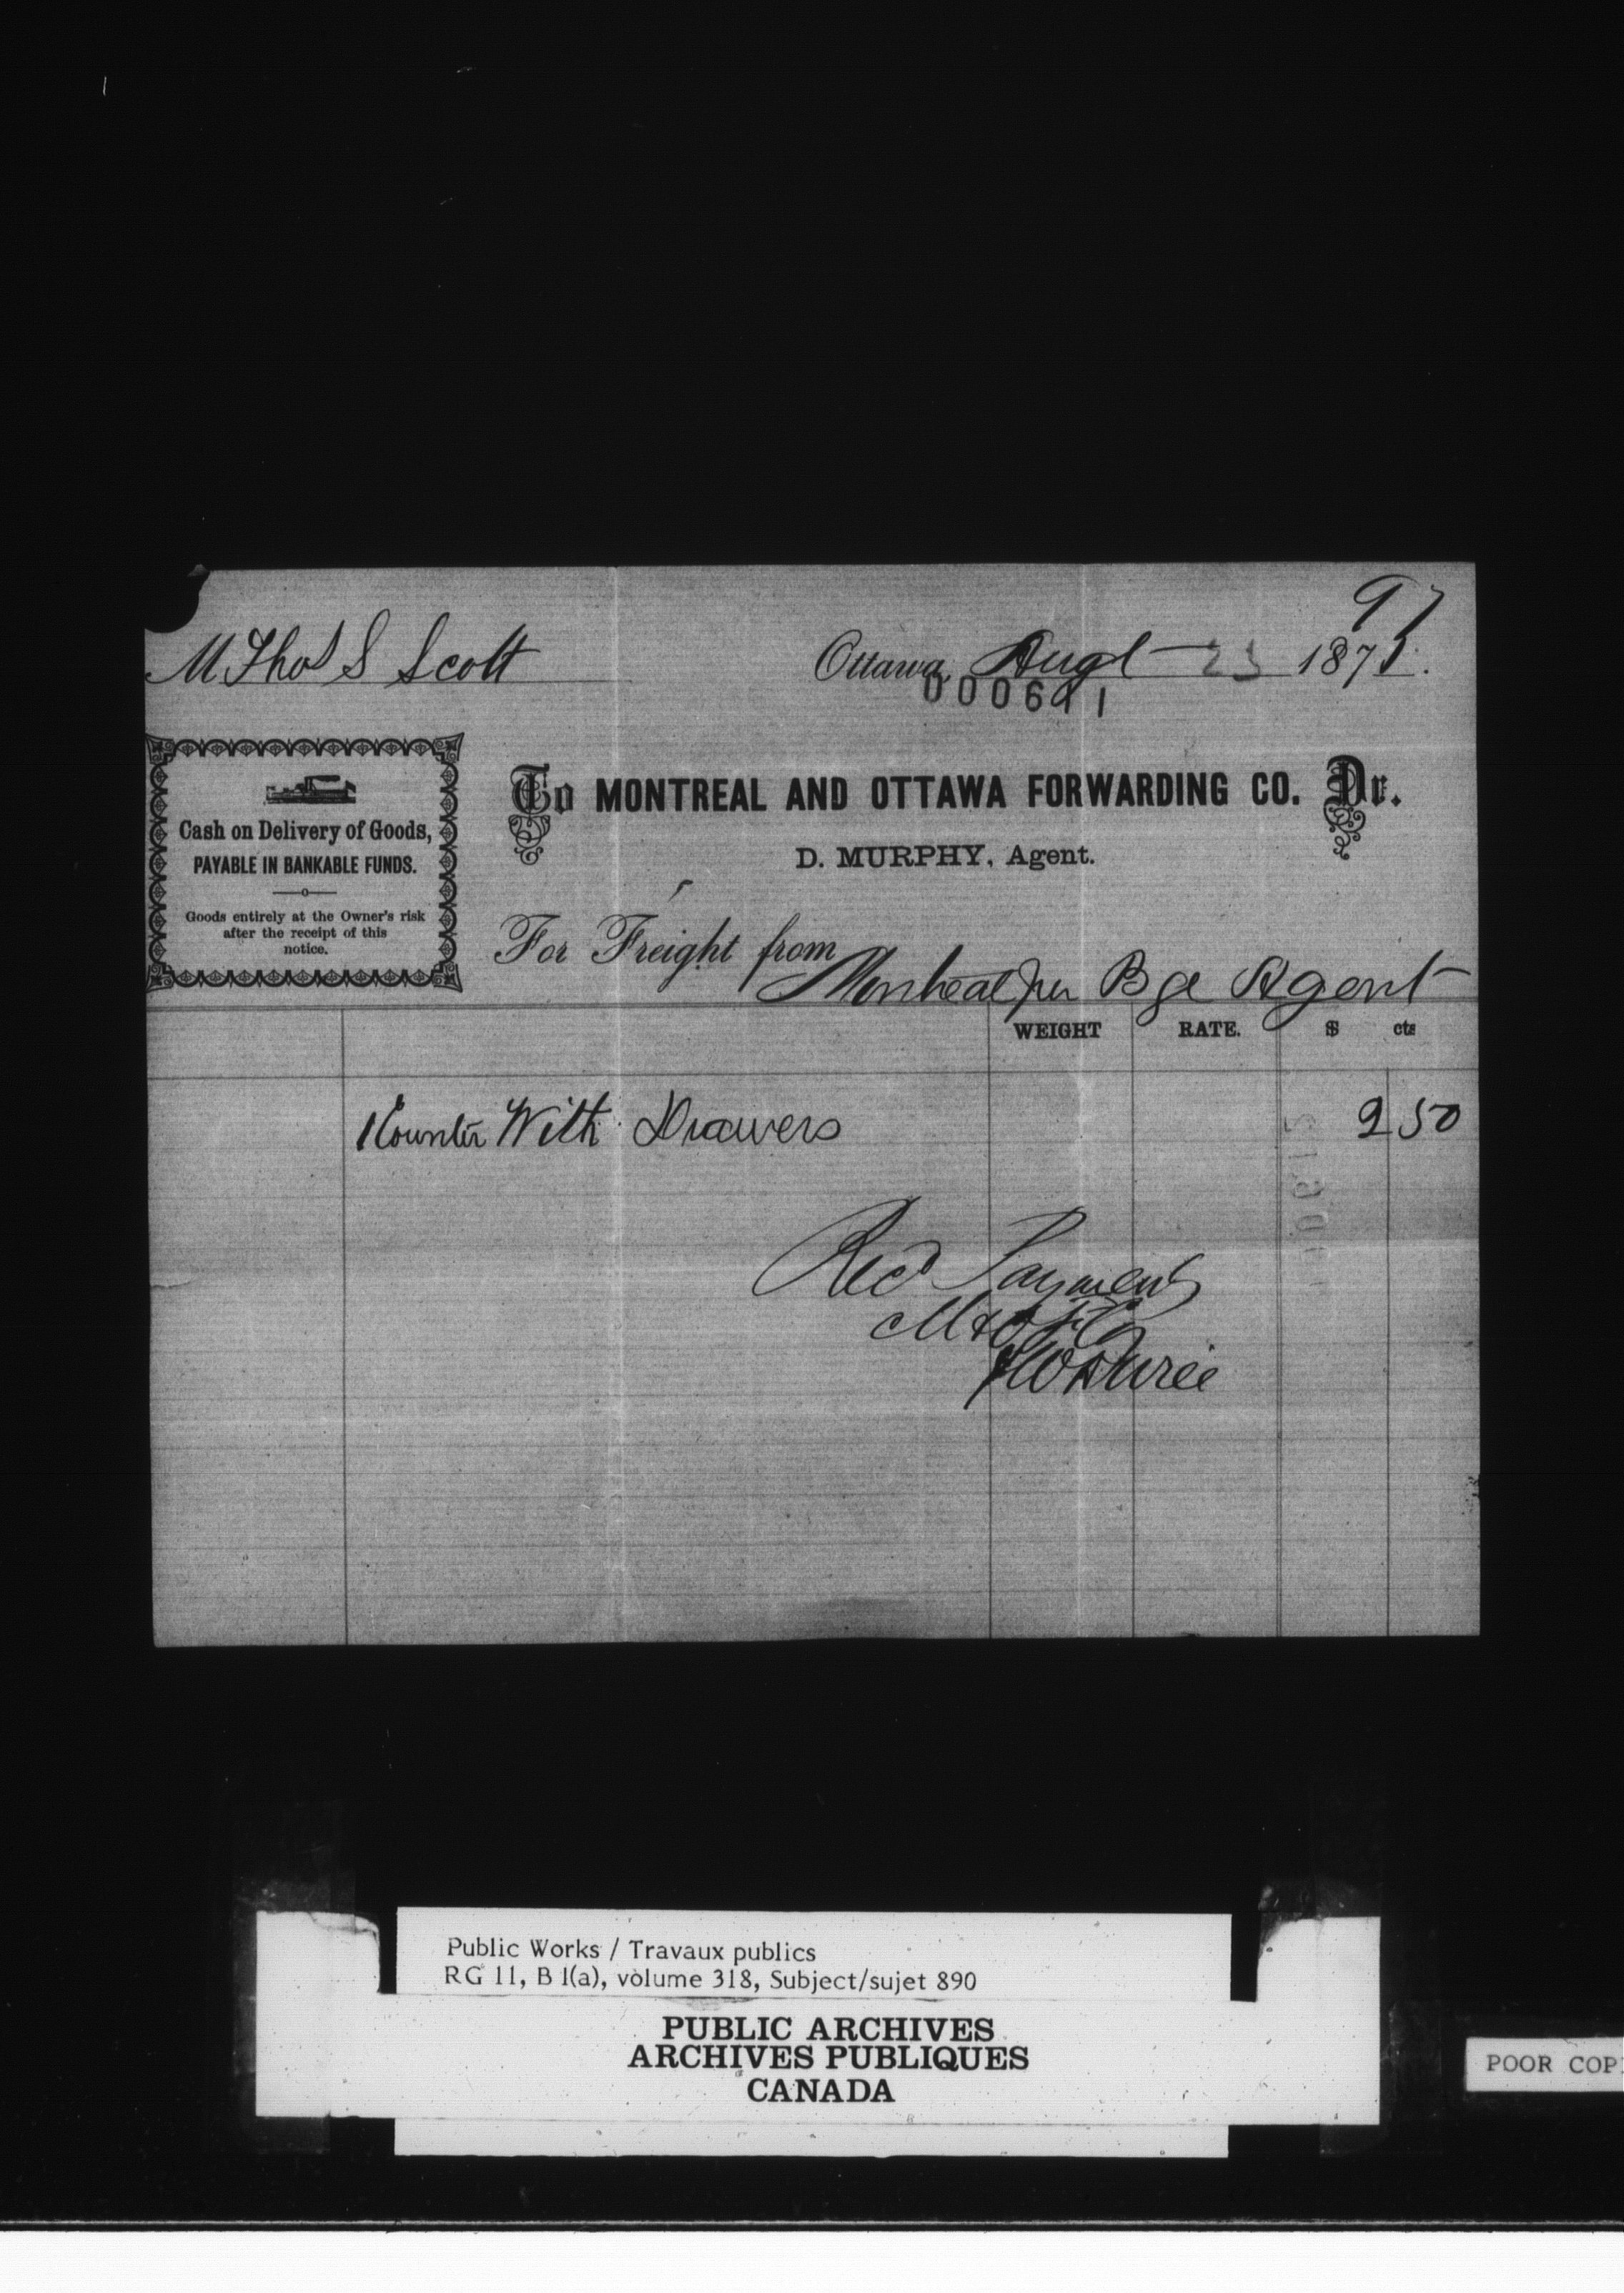 97
M Thos S Scott
Ottawa, Augt 23 1875.
000691
To MONTREAL AND OTTAWA FORWARDING CO. Dr.
D. MURPHY, Agent.
Cash on Delivery of Goods,
PAYABLE IN BANKABLE FUNDS.
Goods entirely at the Owner's risk
after the receipt of this
notice.
For Freight from Montreal per Bge Agent
WEIGHT RATE. $ cts
1 Counter With Drawers 2 50
Recd Payment
M & O F Co
Public Works / Travaux publics
RG 11, B 1(a), volume 318, Subject/sujet 890
PUBLIC ARCHIVES
ARCHIVES PUBLIQUES
CANADA
POOR COP